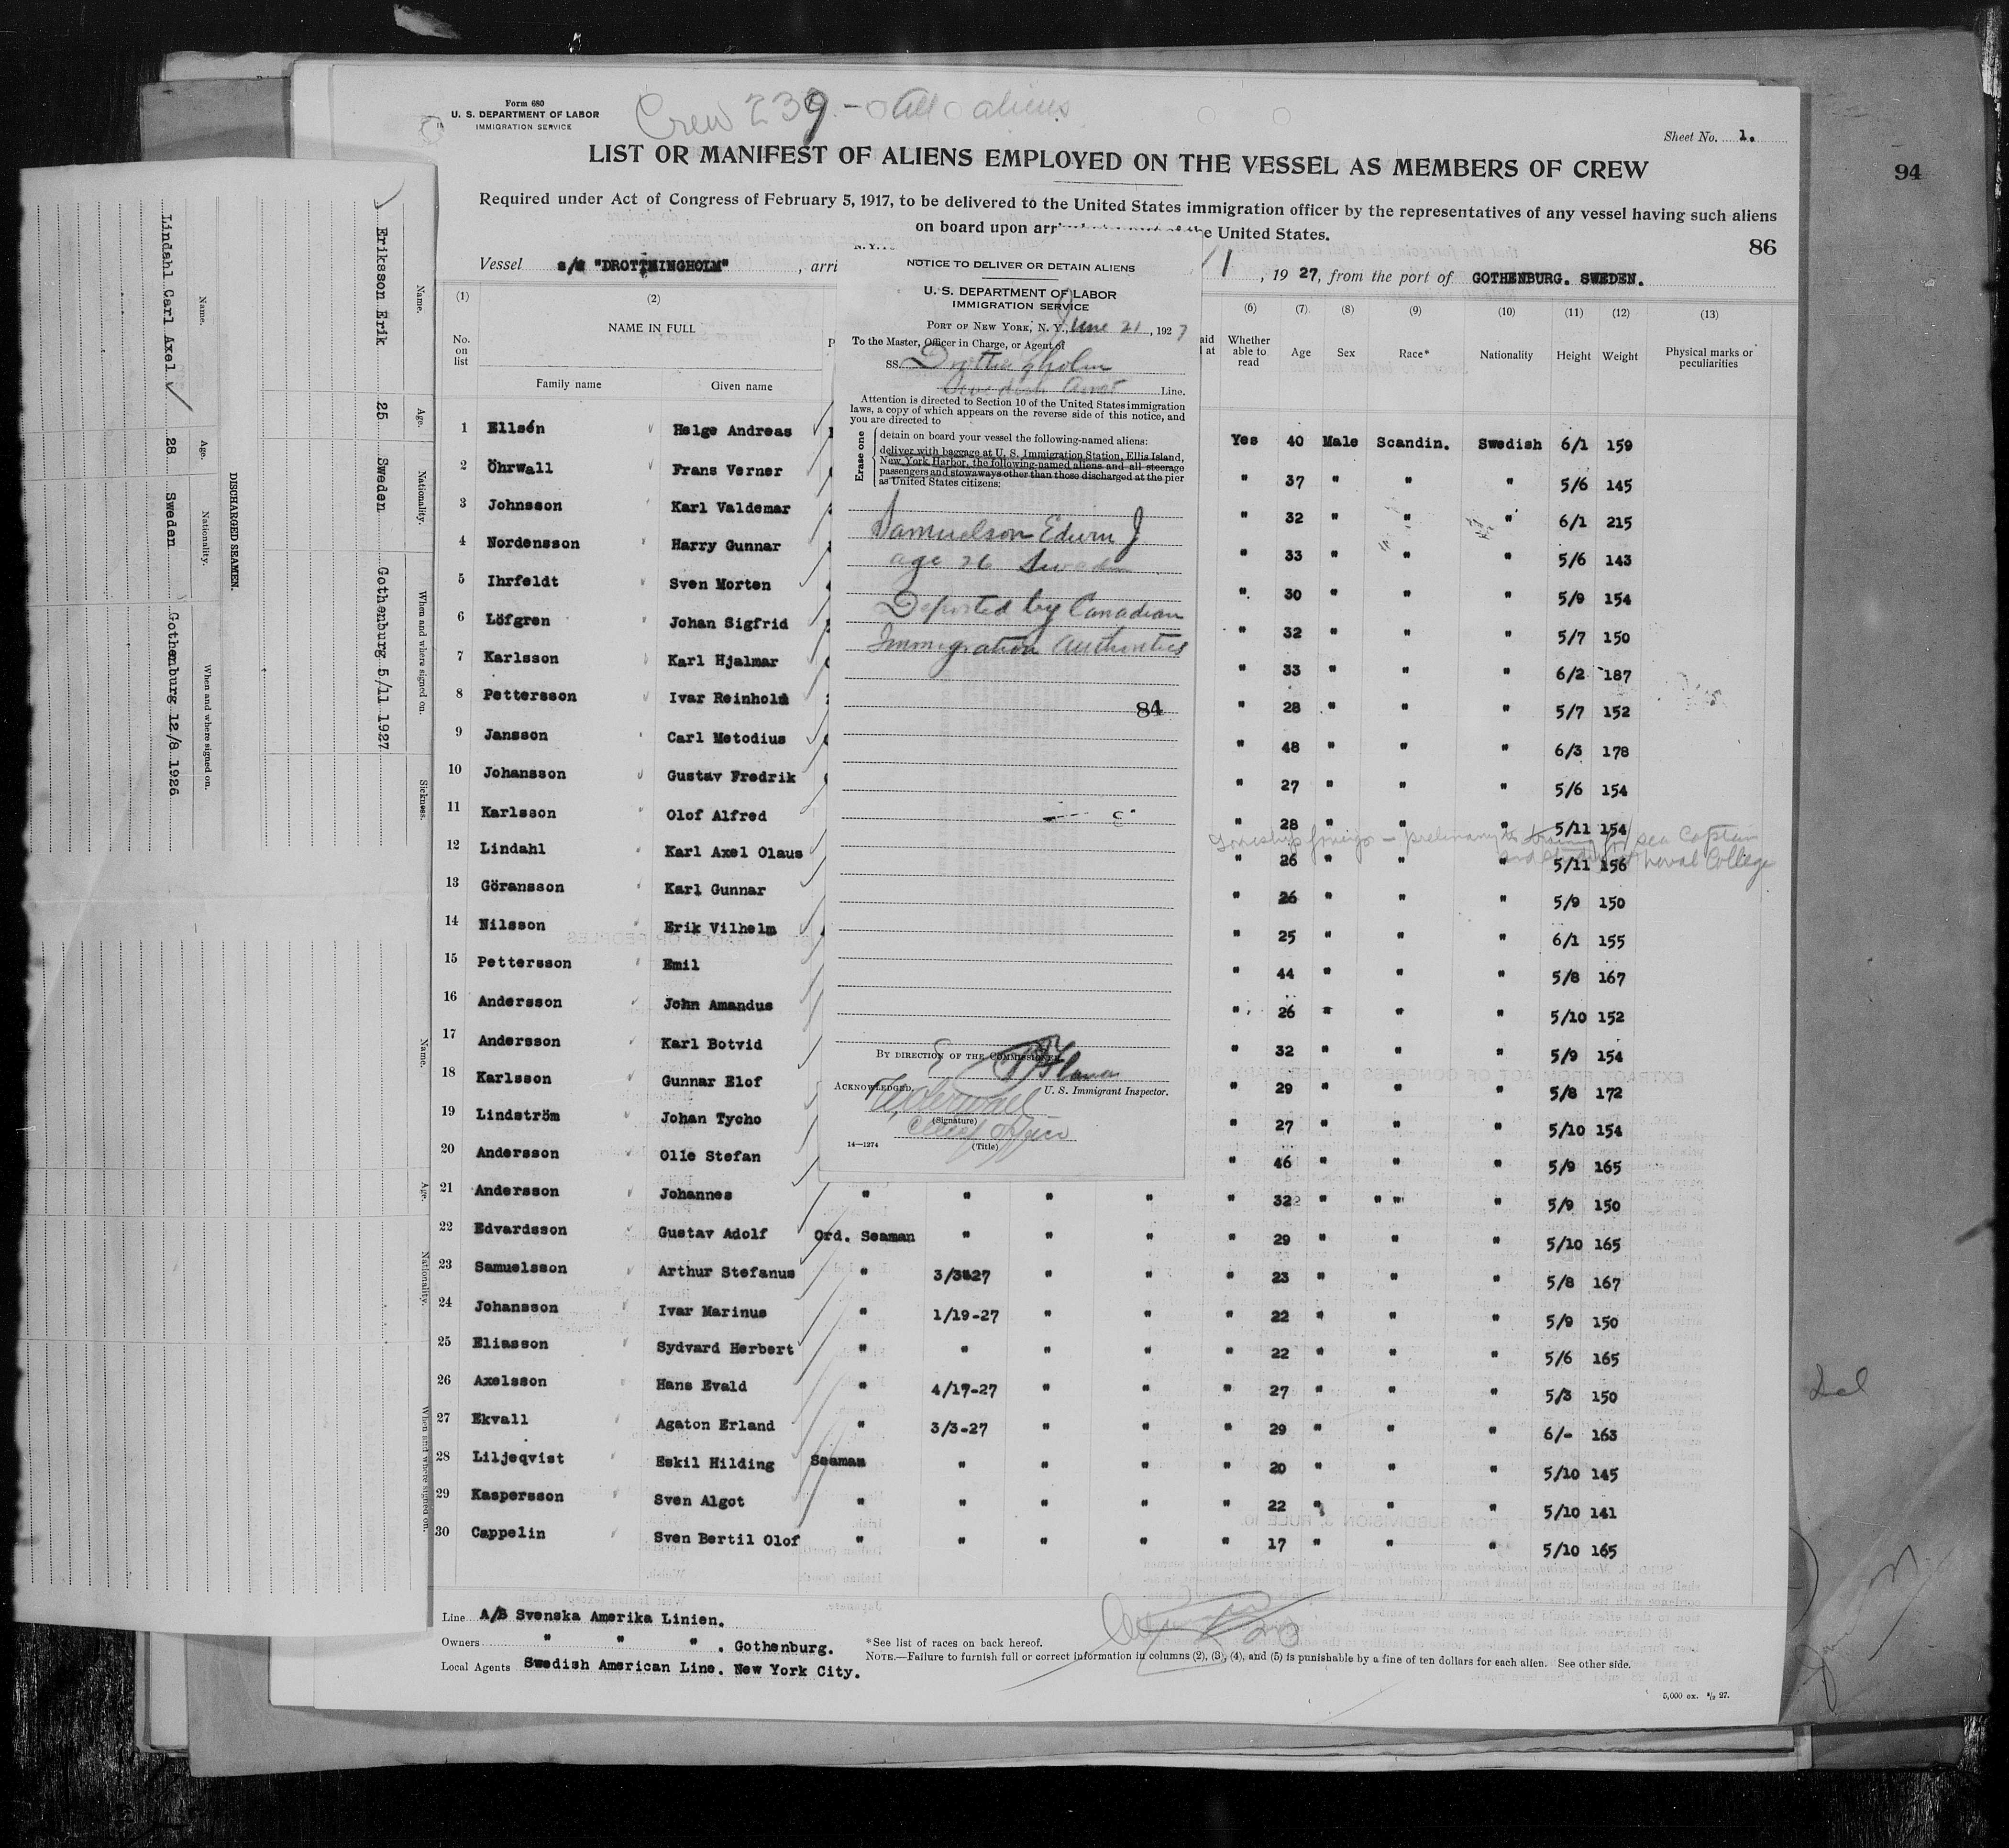 Form 680
U. S. DEPARTMENT OF LABOR
IMMIGRATION SERVICE
Crew 239 - all aliens
Sheet No. 1.
LIST OR MANIFEST OF ALIENS EMPLOYED ON THE VESSEL AS MEMBERS OF CREW
94
Required under Act of Congress of February 5, 1917, to be delivered to the United States immigration officer by the representatives of any vessel having such aliens
on board upon arr e United States.
86
Vessel s/s "DROTTNINGHOLM" , arri , 19 27, from the port of GOTHENBURG. SWEDEN.
(1) (2) (6) (7) (8) (9) (10) (11) (12) (13)
No. on list NAME IN FULL Family name Given name Whether able to read Age Sex Race* Nationality Height Weight Physical marks or peculiarities
1 Ellsén Helge Andreas Yes 40 Male Scandin. Swedish 6/1 159
2 Öhrwall Frans Verner " 37 " " " 5/6 145
3 Johnsson Karl Valdemar " 32 " " " 6/1 215
4 Nordensson Harry Gunnar " 33 " " " 5/6 143
5 Ihrfeldt Sven Morten " 30 " " " 5/9 154
6 Löfgren Johan Sigfrid " 32 " " " 5/7 150
7 Karlsson Karl Hjalmar " 33 " " " 6/2 187
8 Pettersson Ivar Reinhold " 28 " " " 5/7 152
9 Jansson Carl Metodius " 48 " " " 6/3 178
10 Johansson Gustav Fredrik " 27 " " " 5/6 154
11 Karlsson Olof Alfred " 28 " " " 5/11 154
sea Captain
Naval College
12 Lindahl Karl Axel Olaus " 26 " " " 5/11 156
13 Göransson Karl Gunnar " 26 " " " 5/9 150
14 Nilsson Erik Vilhelm " 25 " " " 6/1 155
15 Pettersson Emil " 44 " " " 5/8 167
16 Andersson John Amandus " 26 " " " 5/10 152
17 Andersson Karl Botvid " 32 " " " 5/9 154
18 Karlsson Gunnar Elof " 29 " " " 5/8 172
19 Lindström Johan Tycho " 27 " " " 5/10 154
20 Andersson Olle Stefan " 46 " " " 5/9 165
21 Andersson Johannes " " " " " 32 " " " 5/9 150
22 Edvardsson Gustav Adolf Ord. Seaman " " " " 29 " " " 5/10 165
23 Samuelsson Arthur Stefanus " 3/3-27 " " " 23 " " " 5/8 167
24 Johansson Ivar Marinus " 1/19-27 " " " 22 " " " 5/9 150
25 Eliasson Sydvard Herbert " " " " " 22 " " " 5/6 165
26 Axelsson Hans Evald " 4/17-27 " " " 27 " " " 5/3 150
27 Ekvall Agaton Erland " 3/3-27 " " " 29 " " " 6/- 163
28 Liljeqvist Eskil Hilding Seaman " " " " 20 " " " 5/10 145
29 Kaspersson Sven Algot " " " " " 22 " " " 5/10 141
30 Cappelin Sven Bertil Olof " " " " " 17 " " " 5/10 165
Line A/B Svenska Amerika Linien.
Owners " " " . Gothenburg.
Local Agents Swedish American Line. New York City.
*See list of races on back hereof.
NOTE.—Failure to furnish full or correct information in columns (2), (3), (4), and (5) is punishable by a fine of ten dollars for each alien. See other side.
NOTICE TO DELIVER OR DETAIN ALIENS
U. S. DEPARTMENT OF LABOR
IMMIGRATION SERVICE
PORT OF NEW YORK, N. Y., June 21, 1927
To the Master, Officer in Charge, or Agent of
SS. Drottningholm
Swedish Amer Line.
Attention is directed to Section 10 of the United States immigration
laws, a copy of which appears on the reverse side of this notice, and
you are directed to
Erase one
detain on board your vessel the following-named aliens:
deliver with baggage at U. S. Immigration Station, Ellis Island,
New York Harbor, the following-named aliens and all steerage
passengers and stowaways other than those discharged at the pier
as United States citizens:
Samuelson Edwin J
age 26 Sweden
Deported by Canadian
Immigration Authorities
84
BY DIRECTION OF THE COMMISSIONER.
U. S. Immigrant Inspector.
ACKNOWLEDGED.
(Signature)
Chief Officer
(Title)
14—1274
DISCHARGED SEAMEN.
Name. Age. Nationality. When and where signed on.
Lindahl Carl Axel 28 Sweden Gothenburg 12/8 1926
Name. Age. Nationality. When and where signed on. Sickness.
Eriksson Erik 25 Sweden Gothenburg 5/11 1927
Name. Age. Nationality. When and where signed on.